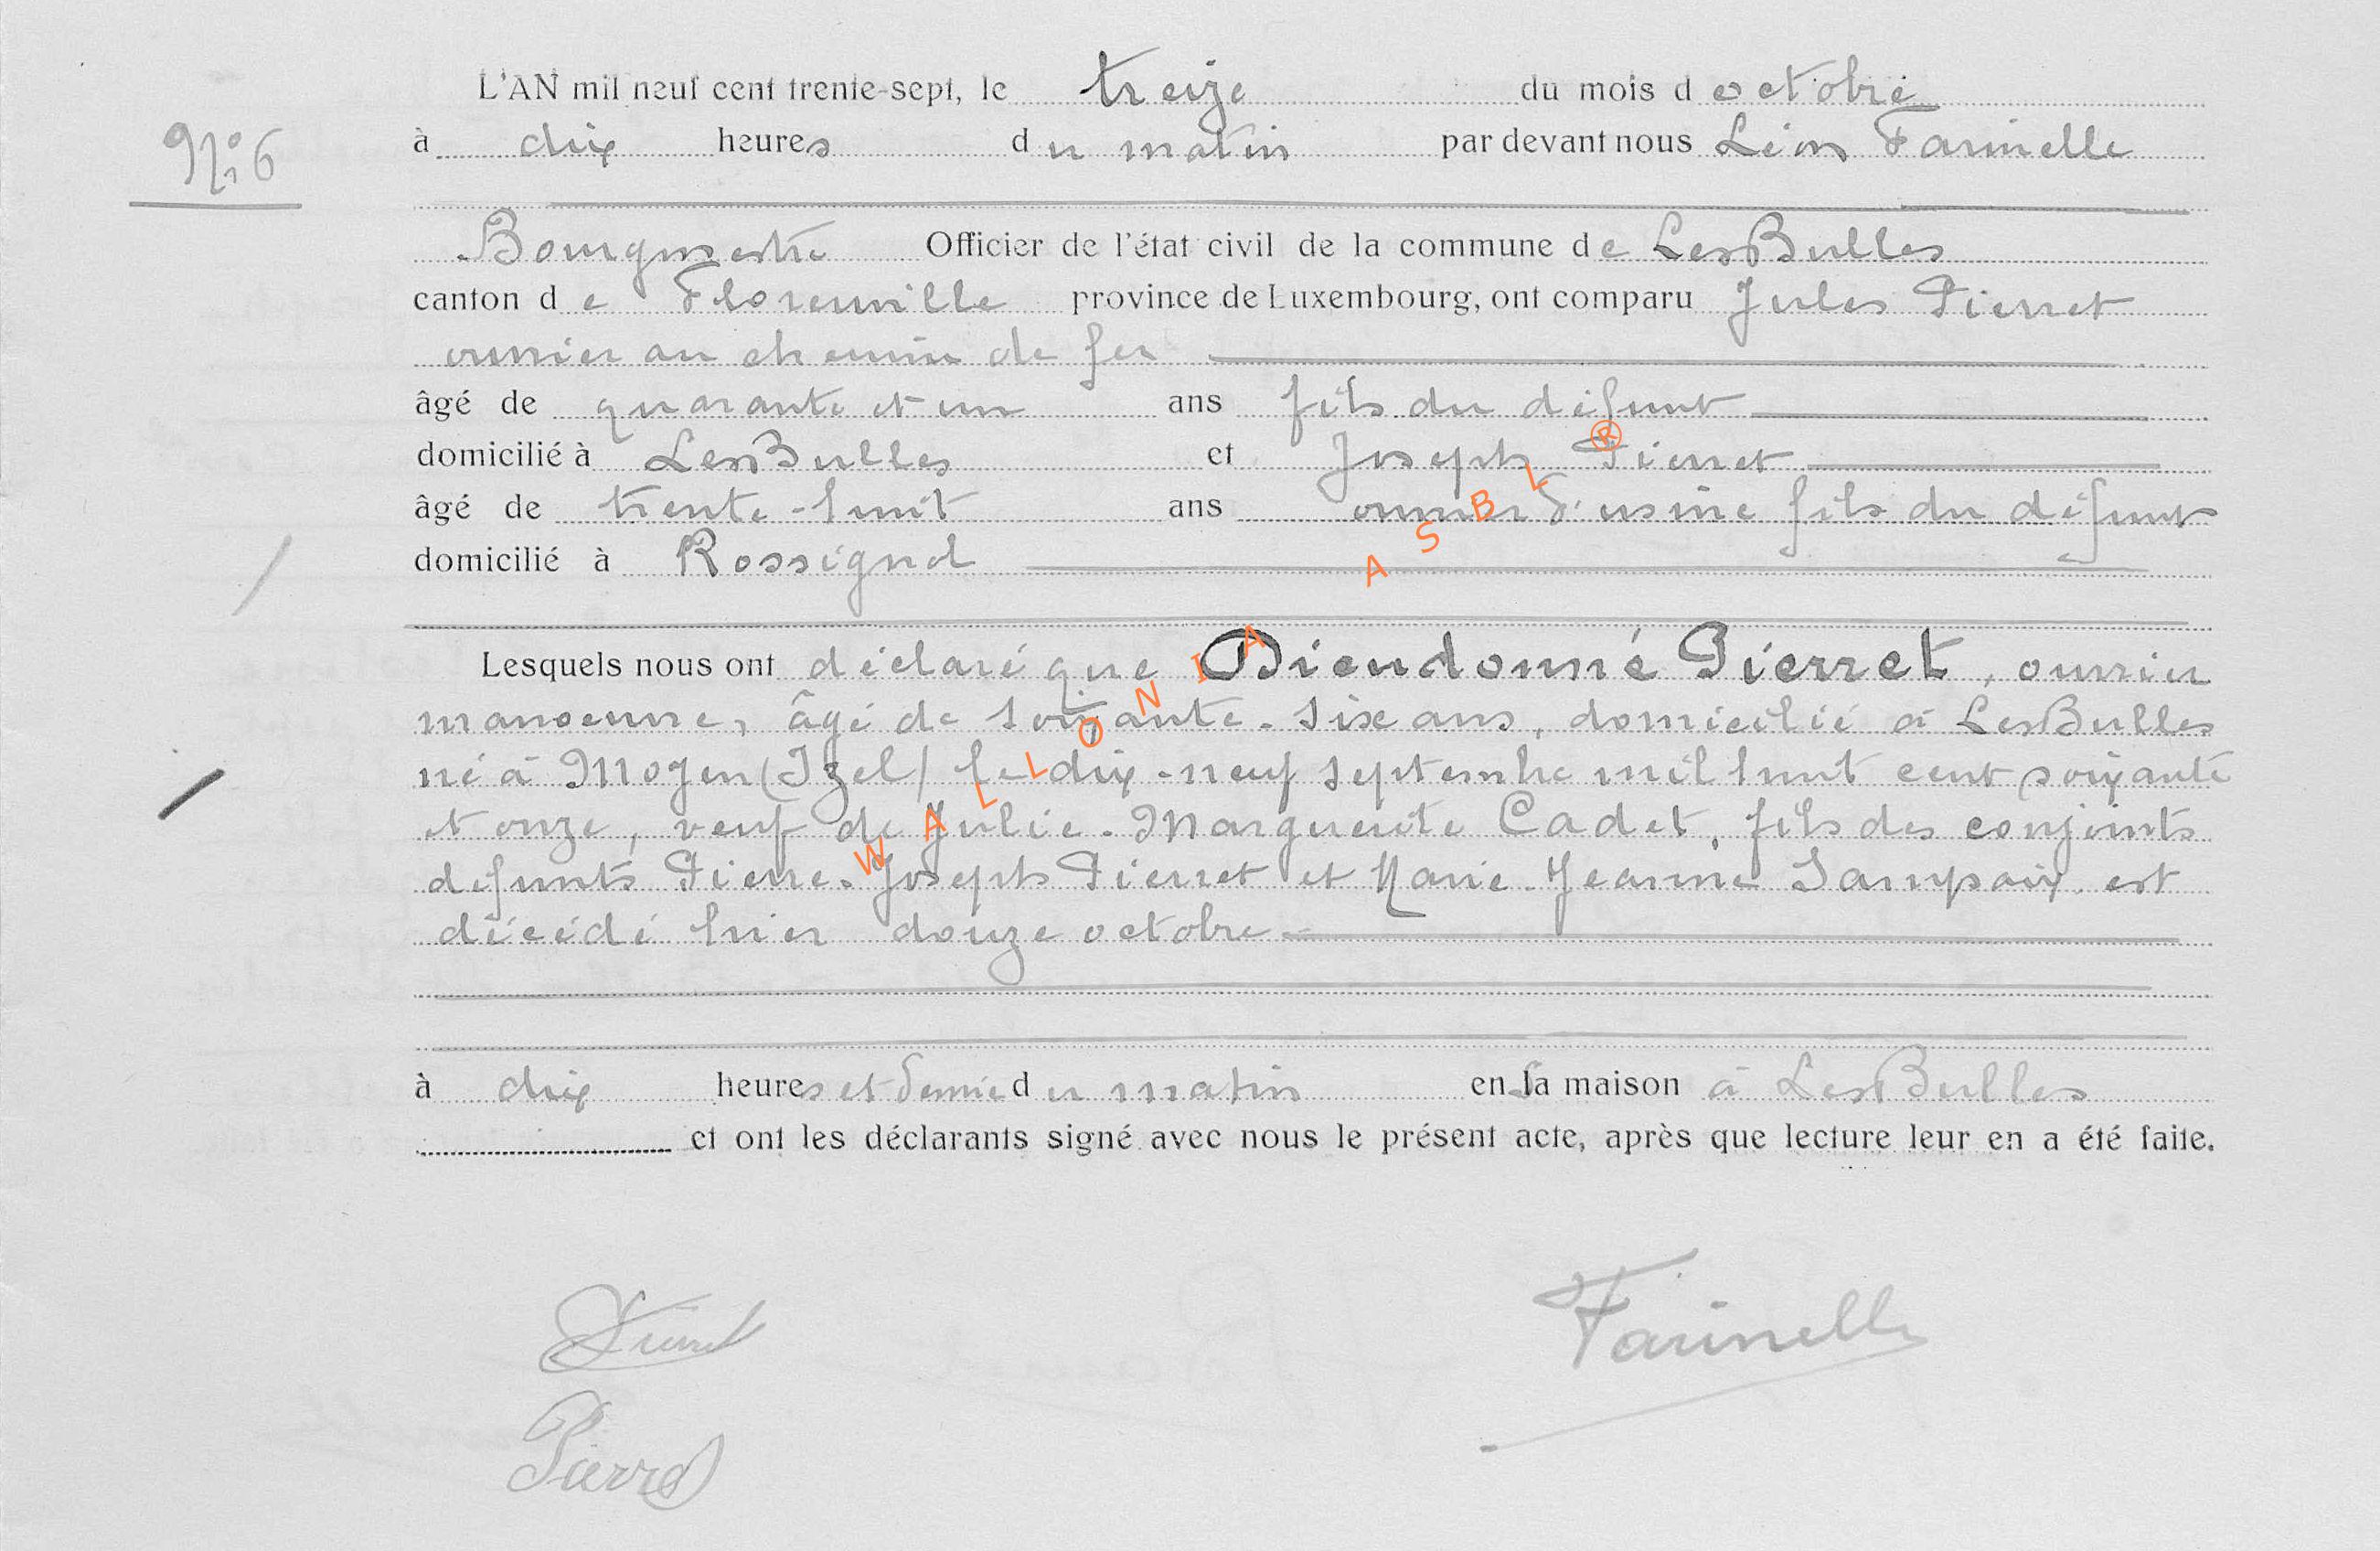 L'AN mil neuf cent trente-sept, le treize du mois d octobre
N° 6
à dix heures du matin par devant nous Léon Farinelle
Bourgmestre Officier de l'état civil de la commune de LesBulles
canton de Florenville province de Luxembourg, ont comparu Jules Pierret
ouvrier au chemin de fer
âgé de quarante et un ans fils du défunt
domicilié à LesBulles et Joseph Pierret
âgé de trente-huit ans ouvrier d'usine fils du défunt
domicilié à Rossignol
Lesquels nous ont déclaré que Dieudonné Pierret, ouvrier
manoeuvre, âgé de soixante-six ans, domicilié à LesBulles
né à Moyen (Izel) le dix-neuf septembre mil huit cent soixante
et onze, veuf de Julie-Marguerite Cadet, fils des conjoints
défunts Pierre-Joseph Pierret et Marie-Jeanne Sampaix est
décédé hier douze octobre
à dix heures et demie du matin en sa maison à LesBulles
et ont les déclarants signé avec nous le présent acte, après que lecture leur en a été faite.
Pierret
Farinelle
Pierret
WALLONIA ASBL ®